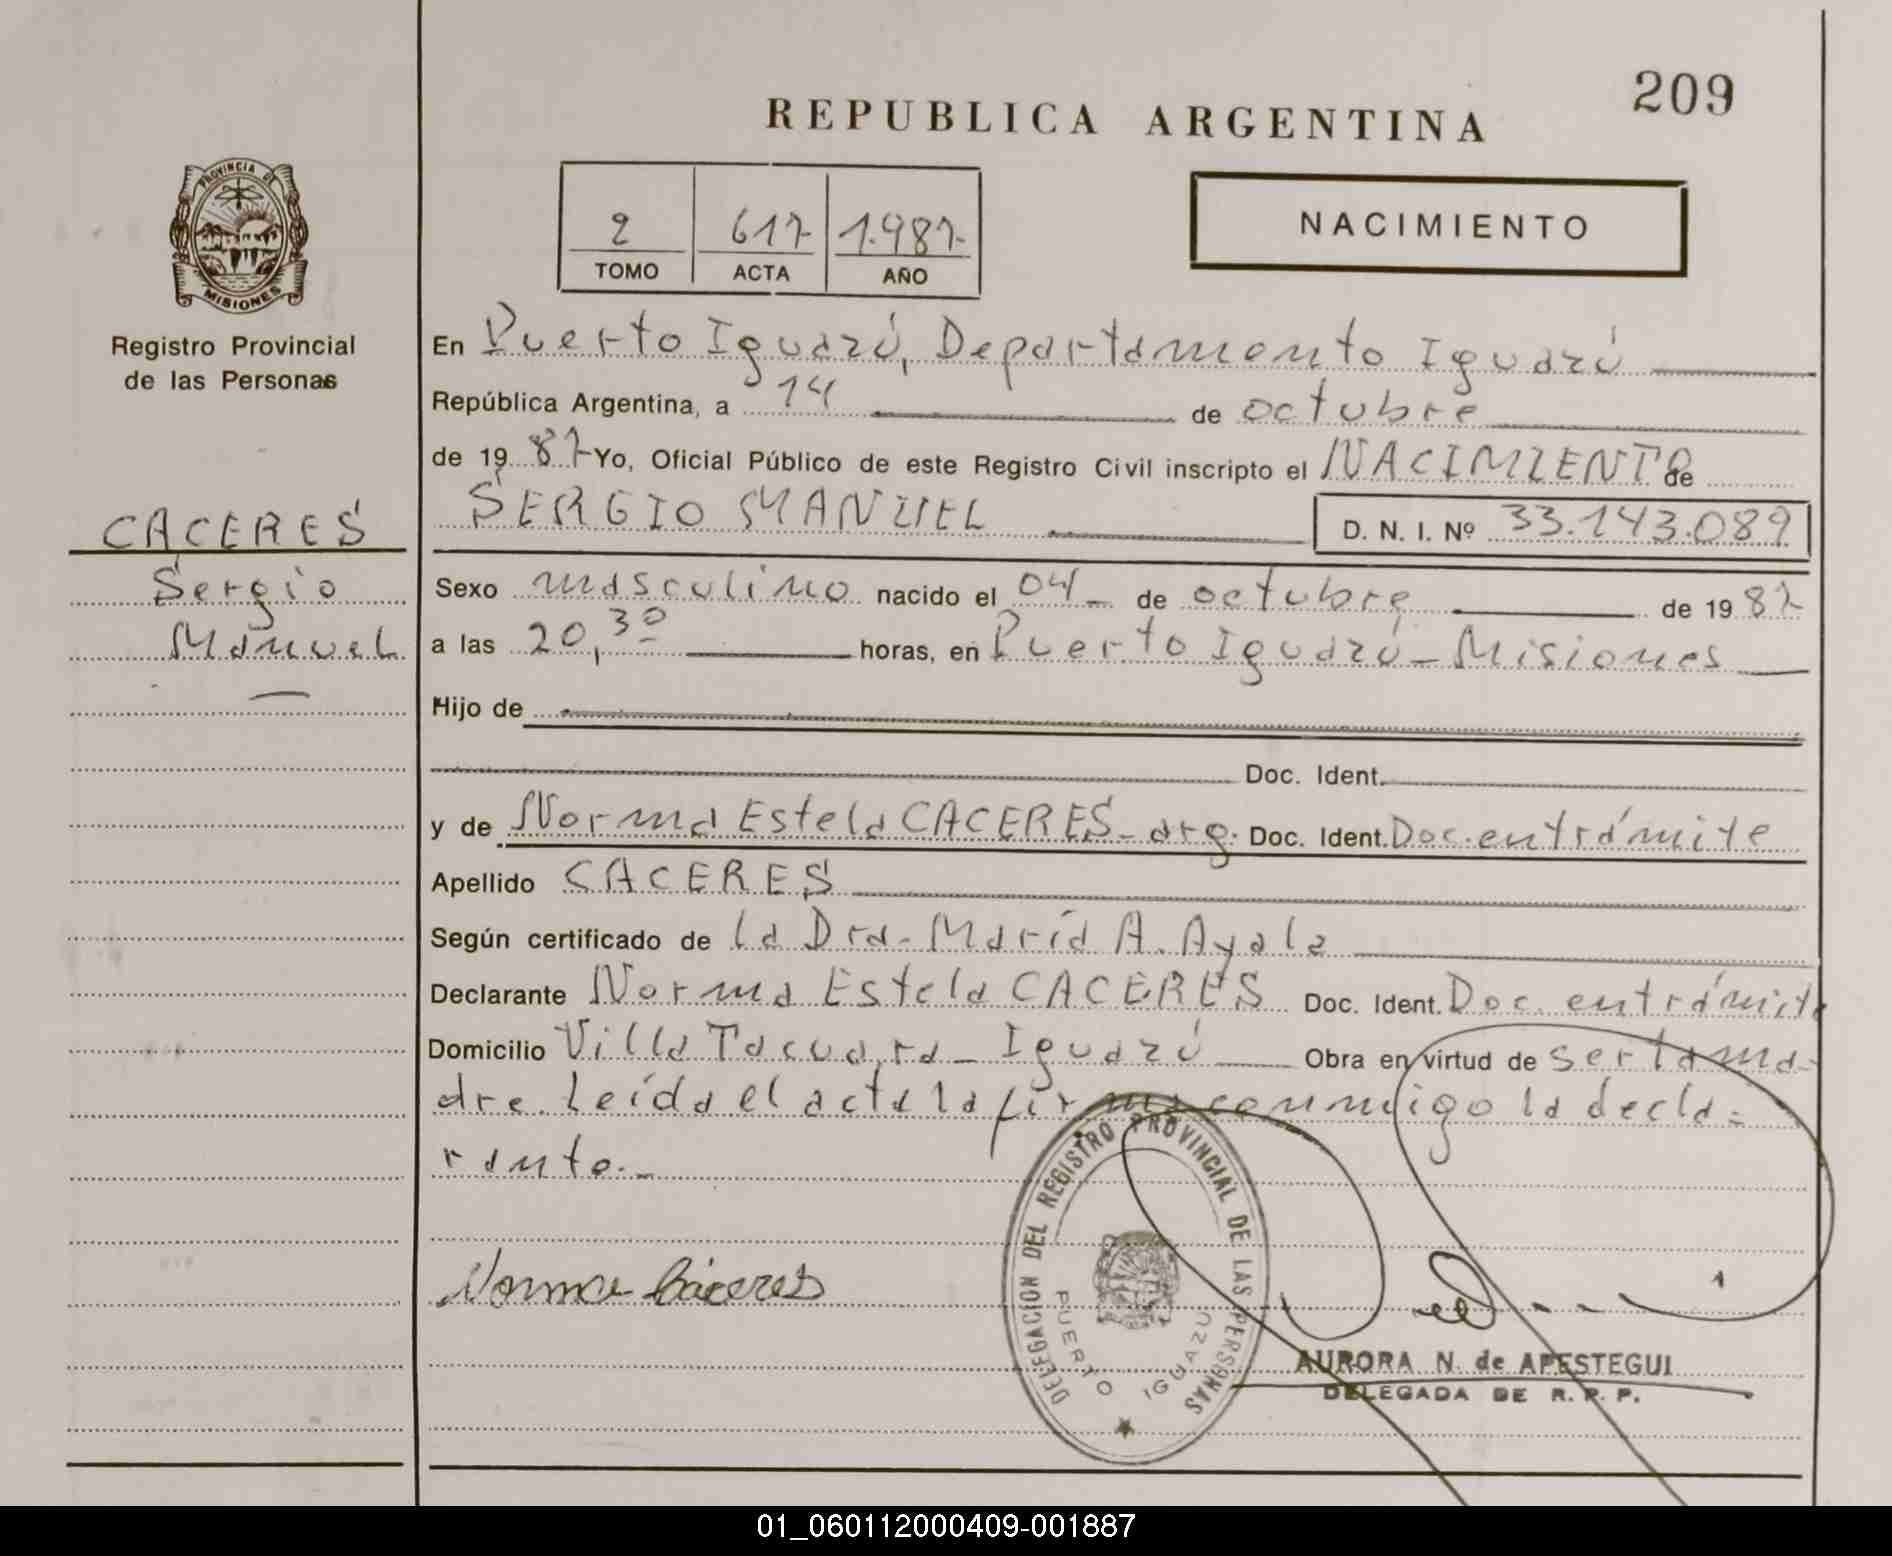 209
REPUBLICA ARGENTINA
PROVINCIA DE
MISIONES
Registro Provincial
de las Personas
2 617 1.987
TOMO ACTA AÑO
NACIMIENTO
CACERES
Sergio
Manuel
En Puerto Iguazú, Departamento Iguazú
República Argentina, a 14 de octubre
de 19 87 Yo, Oficial Público de este Registro Civil inscripto el NACIMIENTO de
SERGIO MANUEL D. N. I. Nº 33.143.089
Sexo masculino nacido el 04 de octubre de 19 87
a las 20,30 horas, en Puerto Iguazú - Misiones
Hijo de
Doc. Ident.
y de Norma Estela CACERES - arg. Doc. Ident. Doc. en trámite
Apellido CACERES
Según certificado de la Dra. María A. Ayala
Declarante Norma Estela CACERES Doc. Ident. Doc. en trámite
Domicilio Villa Tacuara - Iguazú Obra en virtud de ser la ma-
dre. Leída el acta la firma conmigo la decla-
rante.-
Norma Cáceres
DELEGACION DEL REGISTRO PROVINCIAL DE LAS PERSONAS
PUERTO IGUAZU
AURORA N. de APESTEGUI
DELEGADA DE R. P. P.
01_060112000409-001887